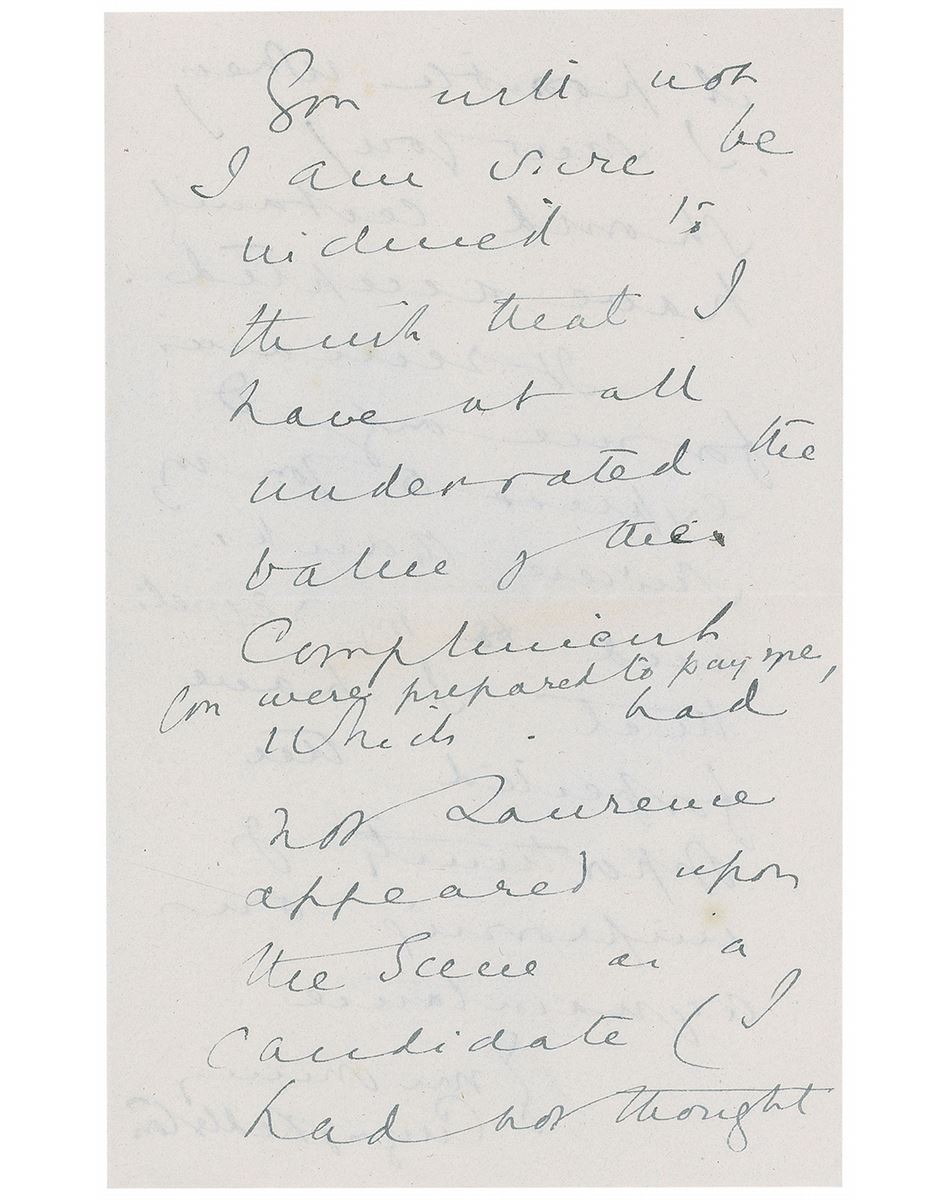 You will not
I am sure be
induced to
think that I
have at all
underrated the
value of the
Compliment
you were prepared to pay me,
Which had
not Laurence
appeared upon
the Scene as a
candidate (I
had not thought